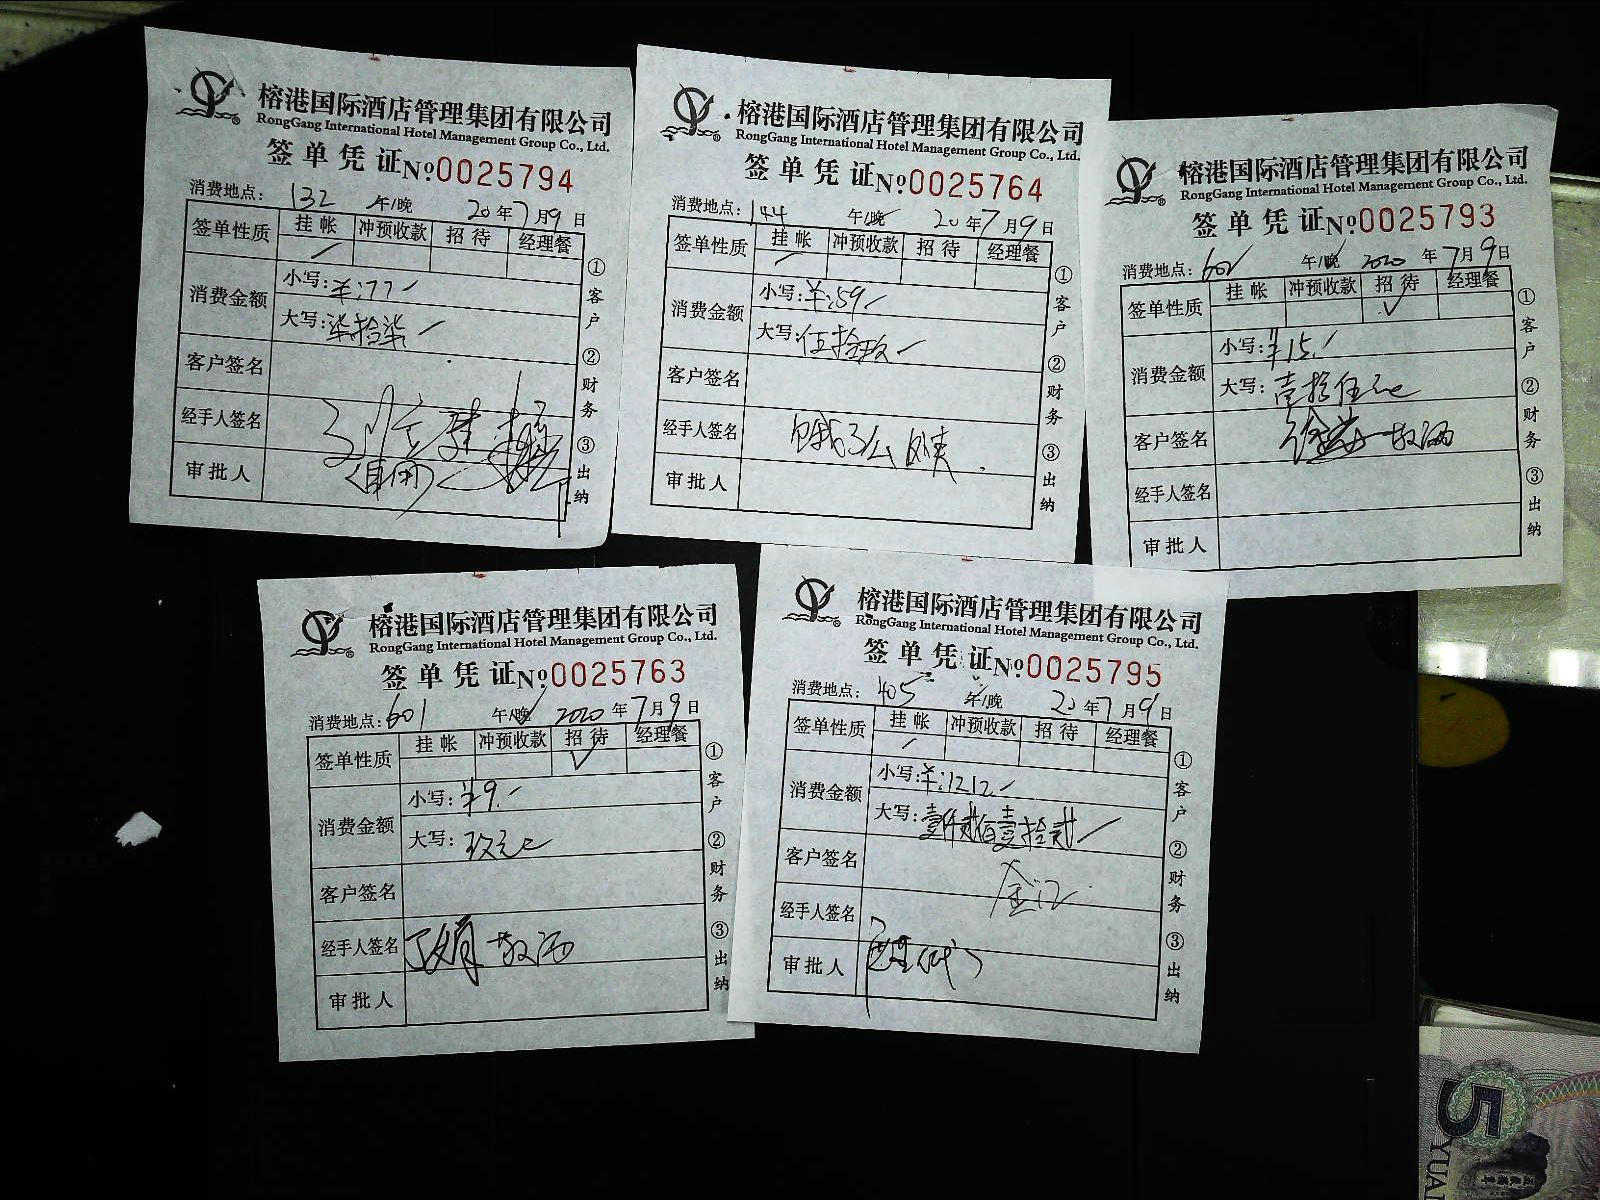 榕港国际酒店管理集团有限公司
RongGang International Hotel Management Group Co., Ltd.
签单凭证 №0025794
消费地点: 132 午/晚 20年7月9日
签单性质 挂帐 冲预收款 招待 经理餐
消费金额 小写: ¥:77
大写: 柒拾柒
客户签名
经手人签名
审批人
①客户 ②财务 ③出纳
榕港国际酒店管理集团有限公司
RongGang International Hotel Management Group Co., Ltd.
签单凭证 №0025764
消费地点: 144 午/晚 20年7月9日
签单性质 挂帐 冲预收款 招待 经理餐
消费金额 小写: ¥:59
大写: 伍拾玖
客户签名
经手人签名
审批人
①客户 ②财务 ③出纳
榕港国际酒店管理集团有限公司
RongGang International Hotel Management Group Co., Ltd.
签单凭证 №0025793
消费地点: 602 午/晚 2020年7月9日
签单性质 挂帐 冲预收款 招待 ✓ 经理餐
消费金额 小写: ¥15.
大写: 壹拾伍元
客户签名
经手人签名
审批人
①客户 ②财务 ③出纳
榕港国际酒店管理集团有限公司
RongGang International Hotel Management Group Co., Ltd.
签单凭证 №0025763
消费地点: 601 午/晚 2020年7月9日
签单性质 挂帐 冲预收款 招待 ✓ 经理餐
消费金额 小写: ¥9.
大写: 玖元
客户签名
经手人签名
审批人
①客户 ②财务 ③出纳
榕港国际酒店管理集团有限公司
RongGang International Hotel Management Group Co., Ltd.
签单凭证 №0025795
消费地点: 405 午/晚 年7月9日
签单性质 挂帐 冲预收款 招待 经理餐
消费金额 小写: ¥:1212
大写: 壹仟贰佰壹拾贰
客户签名
经手人签名
审批人
①客户 ②财务 ③出纳
5
YUA